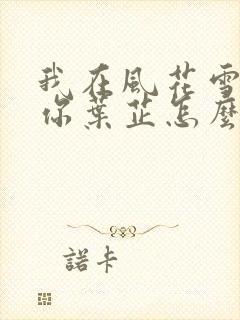 我在風花雪
你葉芷怎麼
諾卡